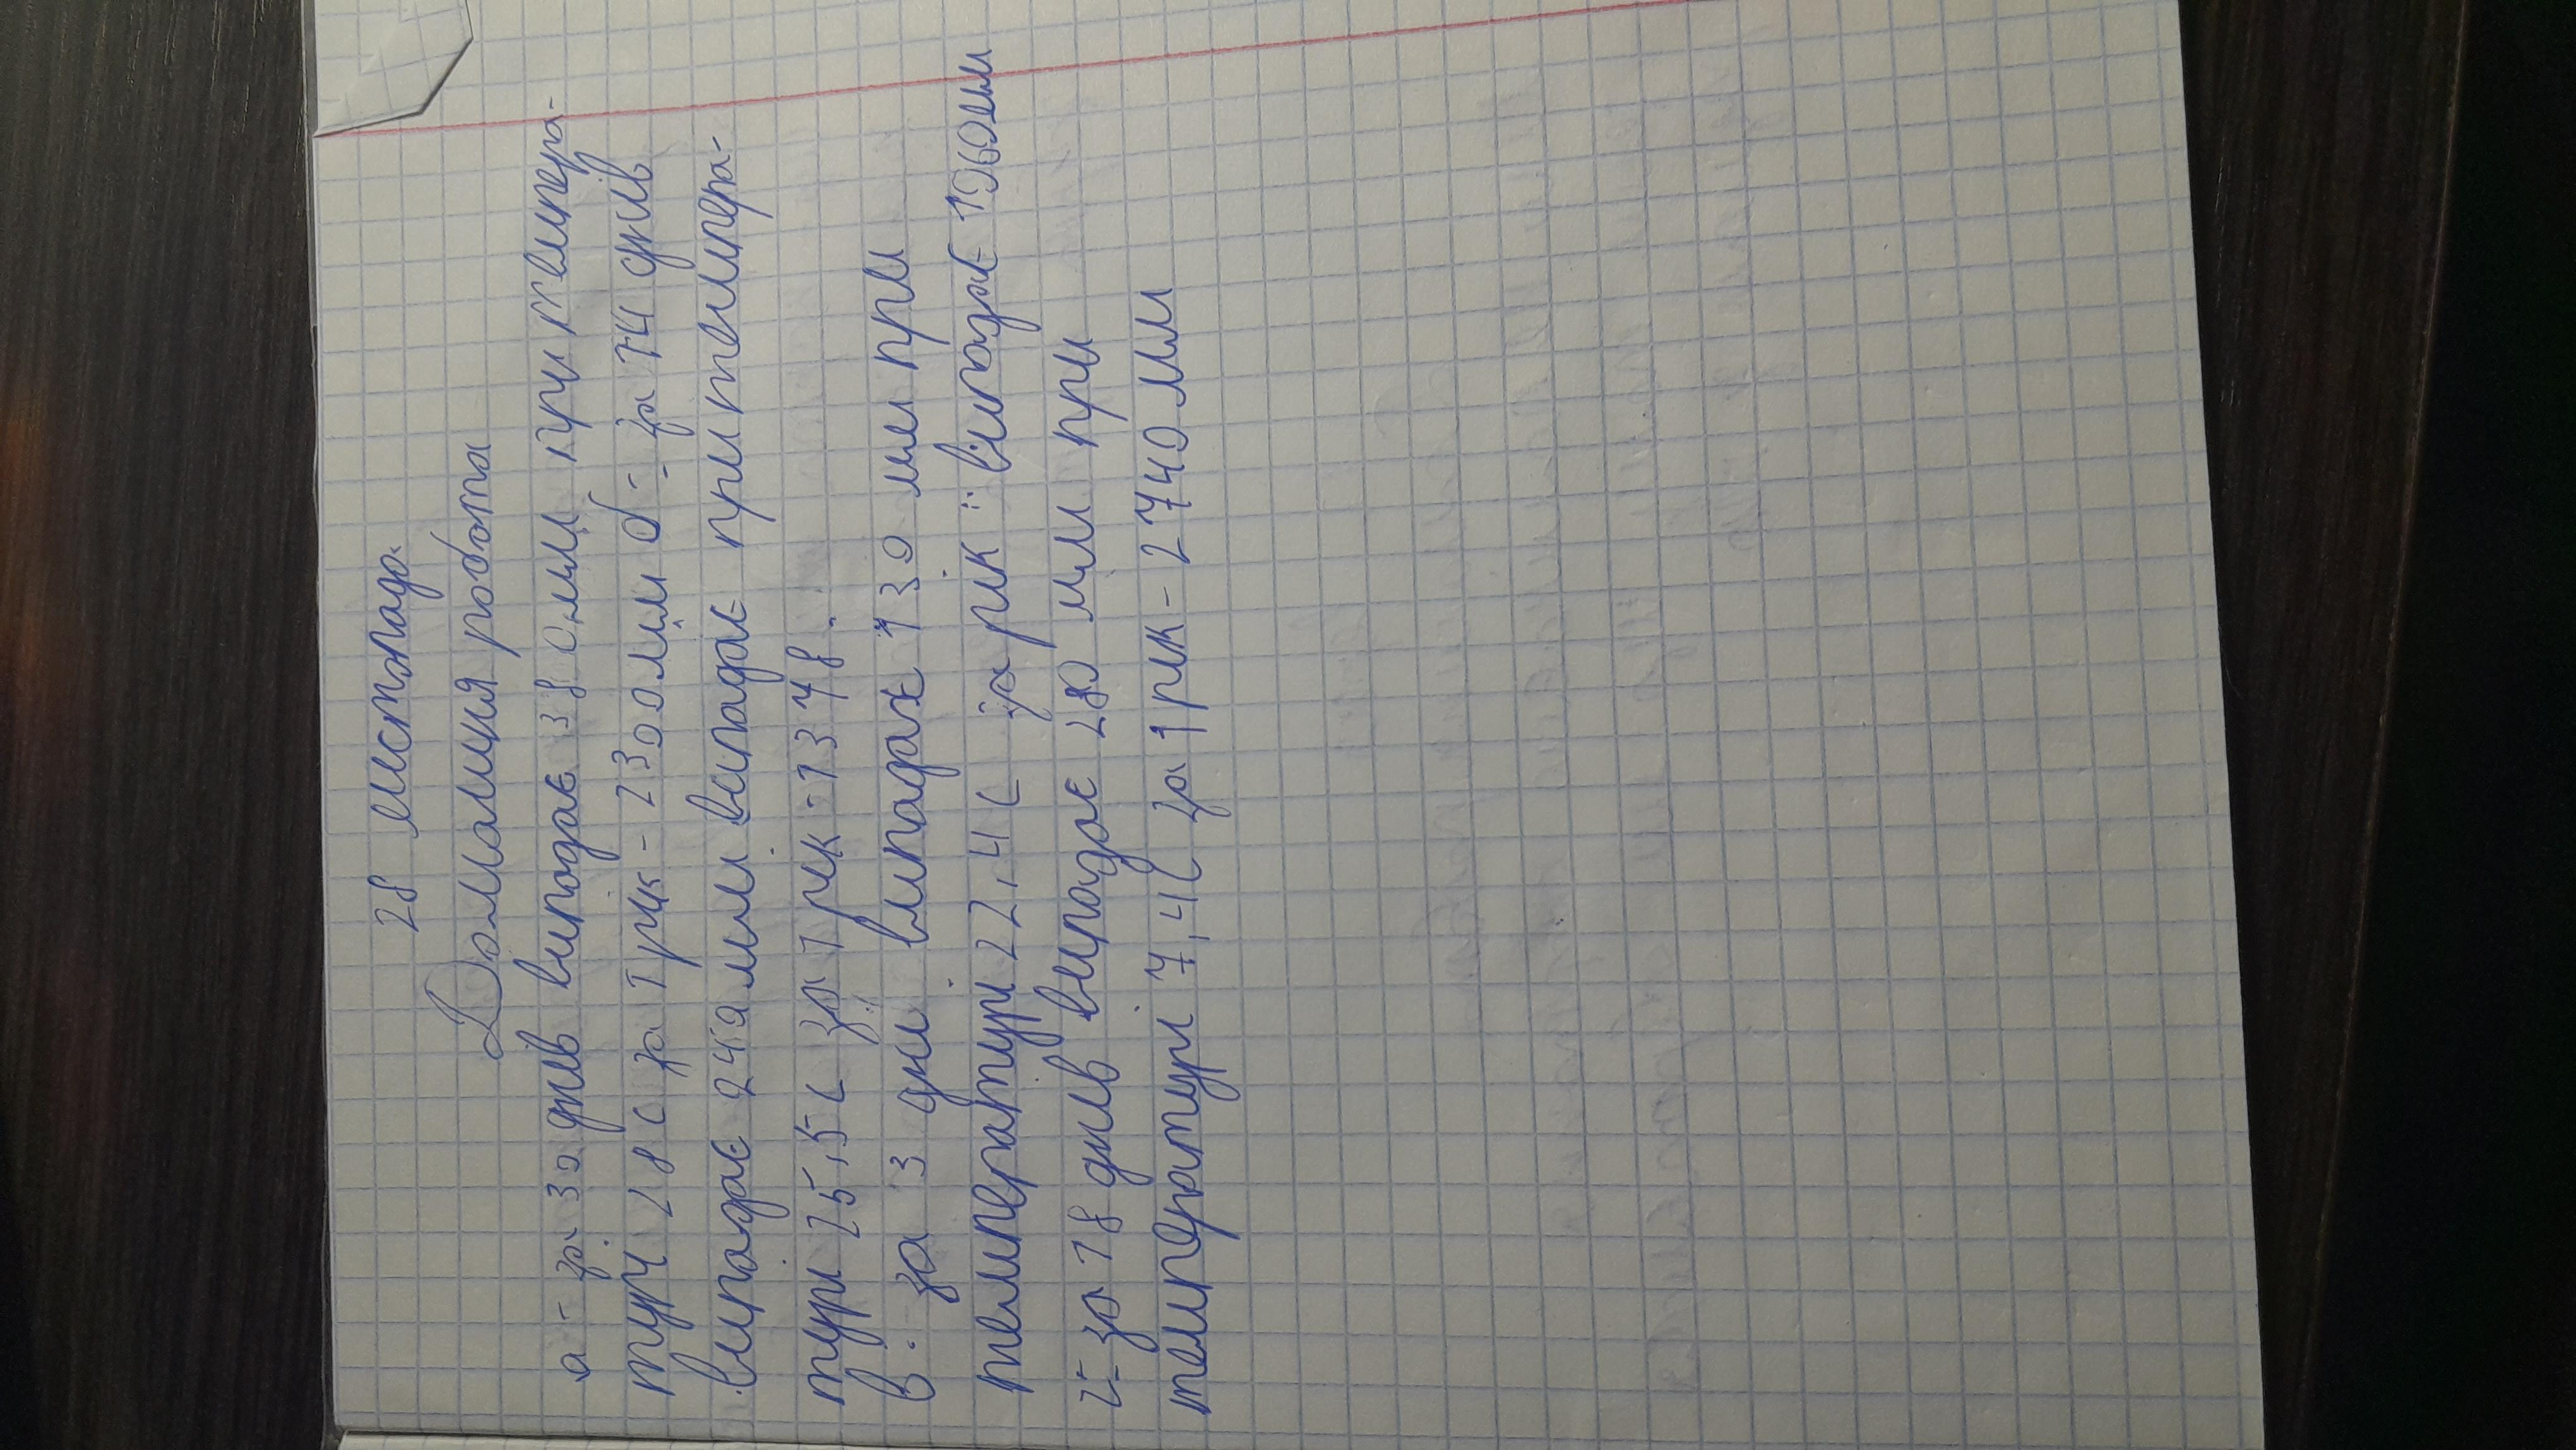 28 листопада
Домашня робота
а - за 30 днів випадає 380 мм, при темпера-
турі 28 С за 1 рік - 2300 мм б - за 14 днів
випадає 249 мм випадає при темпера-
турі 25,5 С за 1 рік - 1348.
в. за 3 дні випадає 130 мм при
температурі 22,4 С за рік : випадає 1060 мм
г - за 18 днів випадає 280 мм при
температурі 7,4 С за 1 рік - 2740 мм